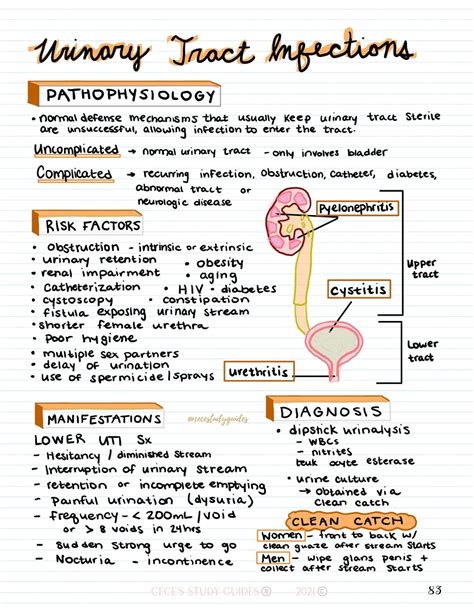 Urinary Tract Infections
PATHOPHYSIOLOGY
• normal defense mechanisms that usually keep urinary tract sterile
are unsuccessful, allowing infection to enter the tract.
Uncomplicated → normal urinary tract - only involves bladder
Complicated → recurring infection, obstruction, catheter, diabetes,
abnormal tract or
neurologic disease
RISK FACTORS
• Obstruction - intrinsic or extrinsic
• urinary retention
• renal impairment
• Catheterization
• cystoscopy
• obesity
• aging
• HIV • diabetes
• constipation
• fistula exposing urinary stream
• shorter female urethra
• Poor hygiene
• multiple sex partners
• delay of urination
• use of spermicide/sprays
Pyelonephritis
Upper
tract
Cystitis
Lower
tract
urethritis
MANIFESTATIONS
@cecestudyguides
LOWER UTI Sx
- Hesitancy / diminished stream
- Interruption of urinary stream
- retention or incomplete emptying
- Painful urination (dysuria)
- frequency - < 200mL/void
or > 8 voids in 24hrs
- Sudden strong urge to go
- Nocturia - incontinence
DIAGNOSIS
• dipstick urinalysis
- WBCs
- nitrites
leuk ocyte esterase
• urine culture
→ obtained via
clean catch
CLEAN CATCH
Women - front to back w/
clean guaze after stream starts
Men - wipe glans penis +
collect after stream starts
CECE'S STUDY GUIDES® 2021 ©
83